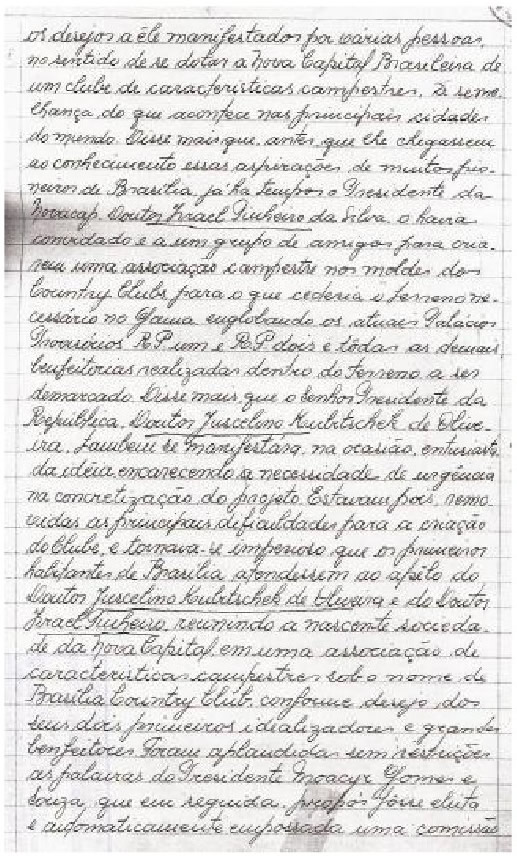 os desejos a êle manifestados por várias pessoas,
no sentido de se dotar a Nova Capital Brasileira de
um clube de características campestres, à seme-
lhança do que acontece nas principais cidades
do mundo. Disse mais que, antes que lhe chegassem
ao conhecimento essas aspirações de muitos pio-
neiros de Brasília, já há tempos o Presidente da
Novacap, Doutor Israel Pinheiro da Silva, o havia
convidado e a um grupo de amigos para cria-
rem uma associação campestre nos moldes dos
Country Clubs para o que cederia o terreno ne-
cessário no Gama englobando os atuais Palácios
Provisórios R.P. um e R.P. dois e tôdas as demais
benfeitorias realizadas dentro do terreno a ser
demarcado. Disse mais que o Senhor Presidente da
República, Doutor Juscelino Kubitschek de Olive-
ira, também se manifestára, na ocasião, entusiasta
da idéia encarecendo a necessidade de urgência
na concretização do projeto. Estavam pois, remo-
vidas as principais dificuldades para a criação
do Clube, e tornava-se imperioso que os primeiros
habitantes de Brasília atendessem ao apêlo do
Doutor Juscelino Kubitschek de Oliveira e do Doutor
Israel Pinheiro, reunindo a nascente socieda-
de da Nova Capital em uma associação de
característica campestre sob o nome de
Brasília Country Club, conforme desejo dos
seus dois primeiros idealizadores e grandes
benfeitores. Foram aplaudidas sem restrições
as palavras do Presidente Moacyr Gomes e
Souza, que em seguida, propôs fôsse eleita
e automaticamente empossada uma comissão